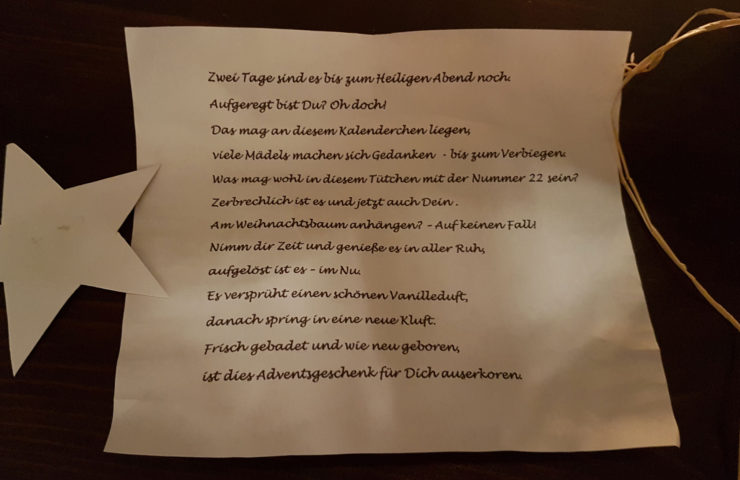 Zwei Tage sind es bis zum Heiligen Abend noch.
Aufgeregt bist Du? Oh doch!
Das mag an diesem Kalenderchen liegen,
viele Mädels machen sich Gedanken - bis zum Verbiegen.
Was mag wohl in diesem Tütchen mit der Nummer 22 sein?
Zerbrechlich ist es und jetzt auch Dein .
Am Weihnachtsbaum anhängen? – Auf keinen Fall!
Nimm dir Zeit und genieße es in aller Ruh,
aufgelöst ist es – im Nu.
Es versprüht einen schönen Vanilleduft,
danach spring in eine neue Kluft.
Frisch gebadet und wie neu geboren,
ist dies Adventsgeschenk für Dich auserkoren.